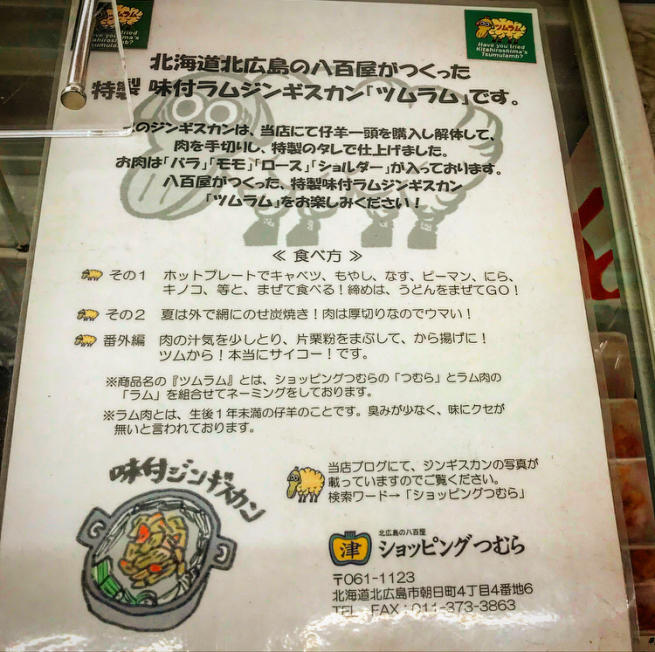 ツムラム
Have you tried
Kitahiroshima's
Tsumulamb?
北海道北広島の八百屋がつくった
特製 味付ラムジンギスカン「ツムラム」です。
のジンギスカンは、当店にて仔羊一頭を購入し解体して、
肉を手切りし、特製のタレで仕上げました。
お肉は「バラ」「モモ」「ロース」「ショルダー」が入っております。
八百屋がつくった、特製味付ラムジンギスカン
「ツムラム」をお楽しみください！
≪ 食べ方 ≫
その１ ホットプレートでキャベツ、もやし、なす、ピーマン、にら、
キノコ、等と、まぜて食べる！締めは、うどんをまぜてGO！
その２ 夏は外で網にのせ炭焼き！肉は厚切りなのでウマい！
番外編 肉の汁気を少しとり、片栗粉をまぶして、から揚げに！
ツムから！本当にサイコー！です。
※商品名の『ツムラム』とは、ショッピングつむらの「つむら」とラム肉の
「ラム」を組合せてネーミングをしております。
※ラム肉とは、生後１年未満の仔羊のことです。臭みが少なく、味にクセが
無いと言われております。
味付ジンギスカン
当店ブログにて、ジンギスカンの写真が
載っていますのでご覧ください。
検索ワード→「ショッピングつむら」
津
北広島の八百屋
ショッピングつむら
〒061-1123
北海道北広島市朝日町４丁目４番地６
TEL FAX：011-373-3863